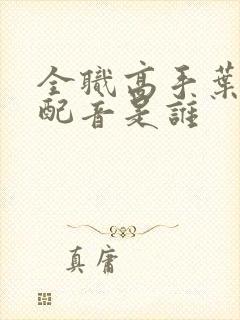 全職高手葉
配音是誰
真庸